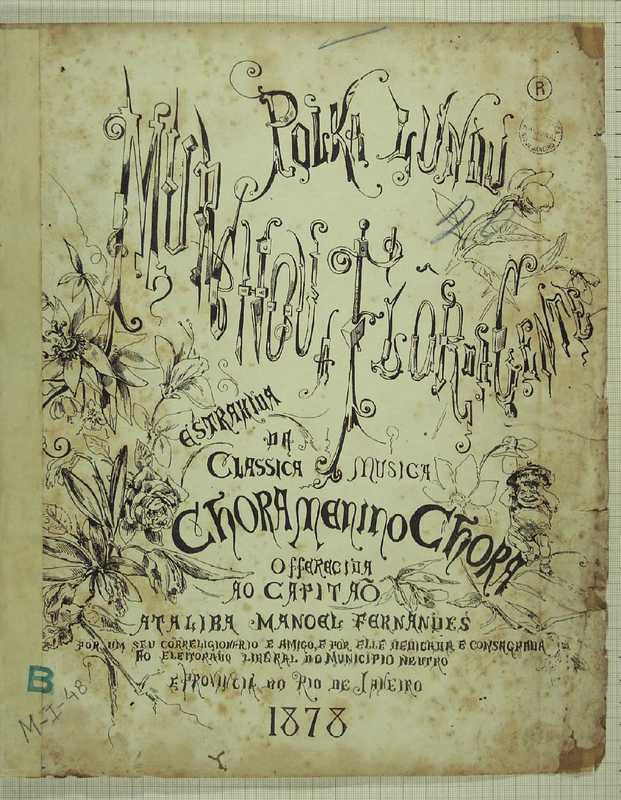 POLKA LUNDÚ
MURCHOU A FLÔR DA GENTE
ESTRAHIDA
DA
CLASSICA MUSICA
CHORA MENINO CHORA
OFFERECIDA
AO CAPITAÕ
ATALIBA MANOEL FERNANDES
POR UM SEU CORRELIGIONARIO E AMIGO, E POR ELLE DEDICADA E CONSAGRADA
AO ELEITORADO LIBERAL DO MUNICIPIO NEUTRO
E PROVINCIA DO RIO DE JANEIRO
1878
R
B
M-I-48